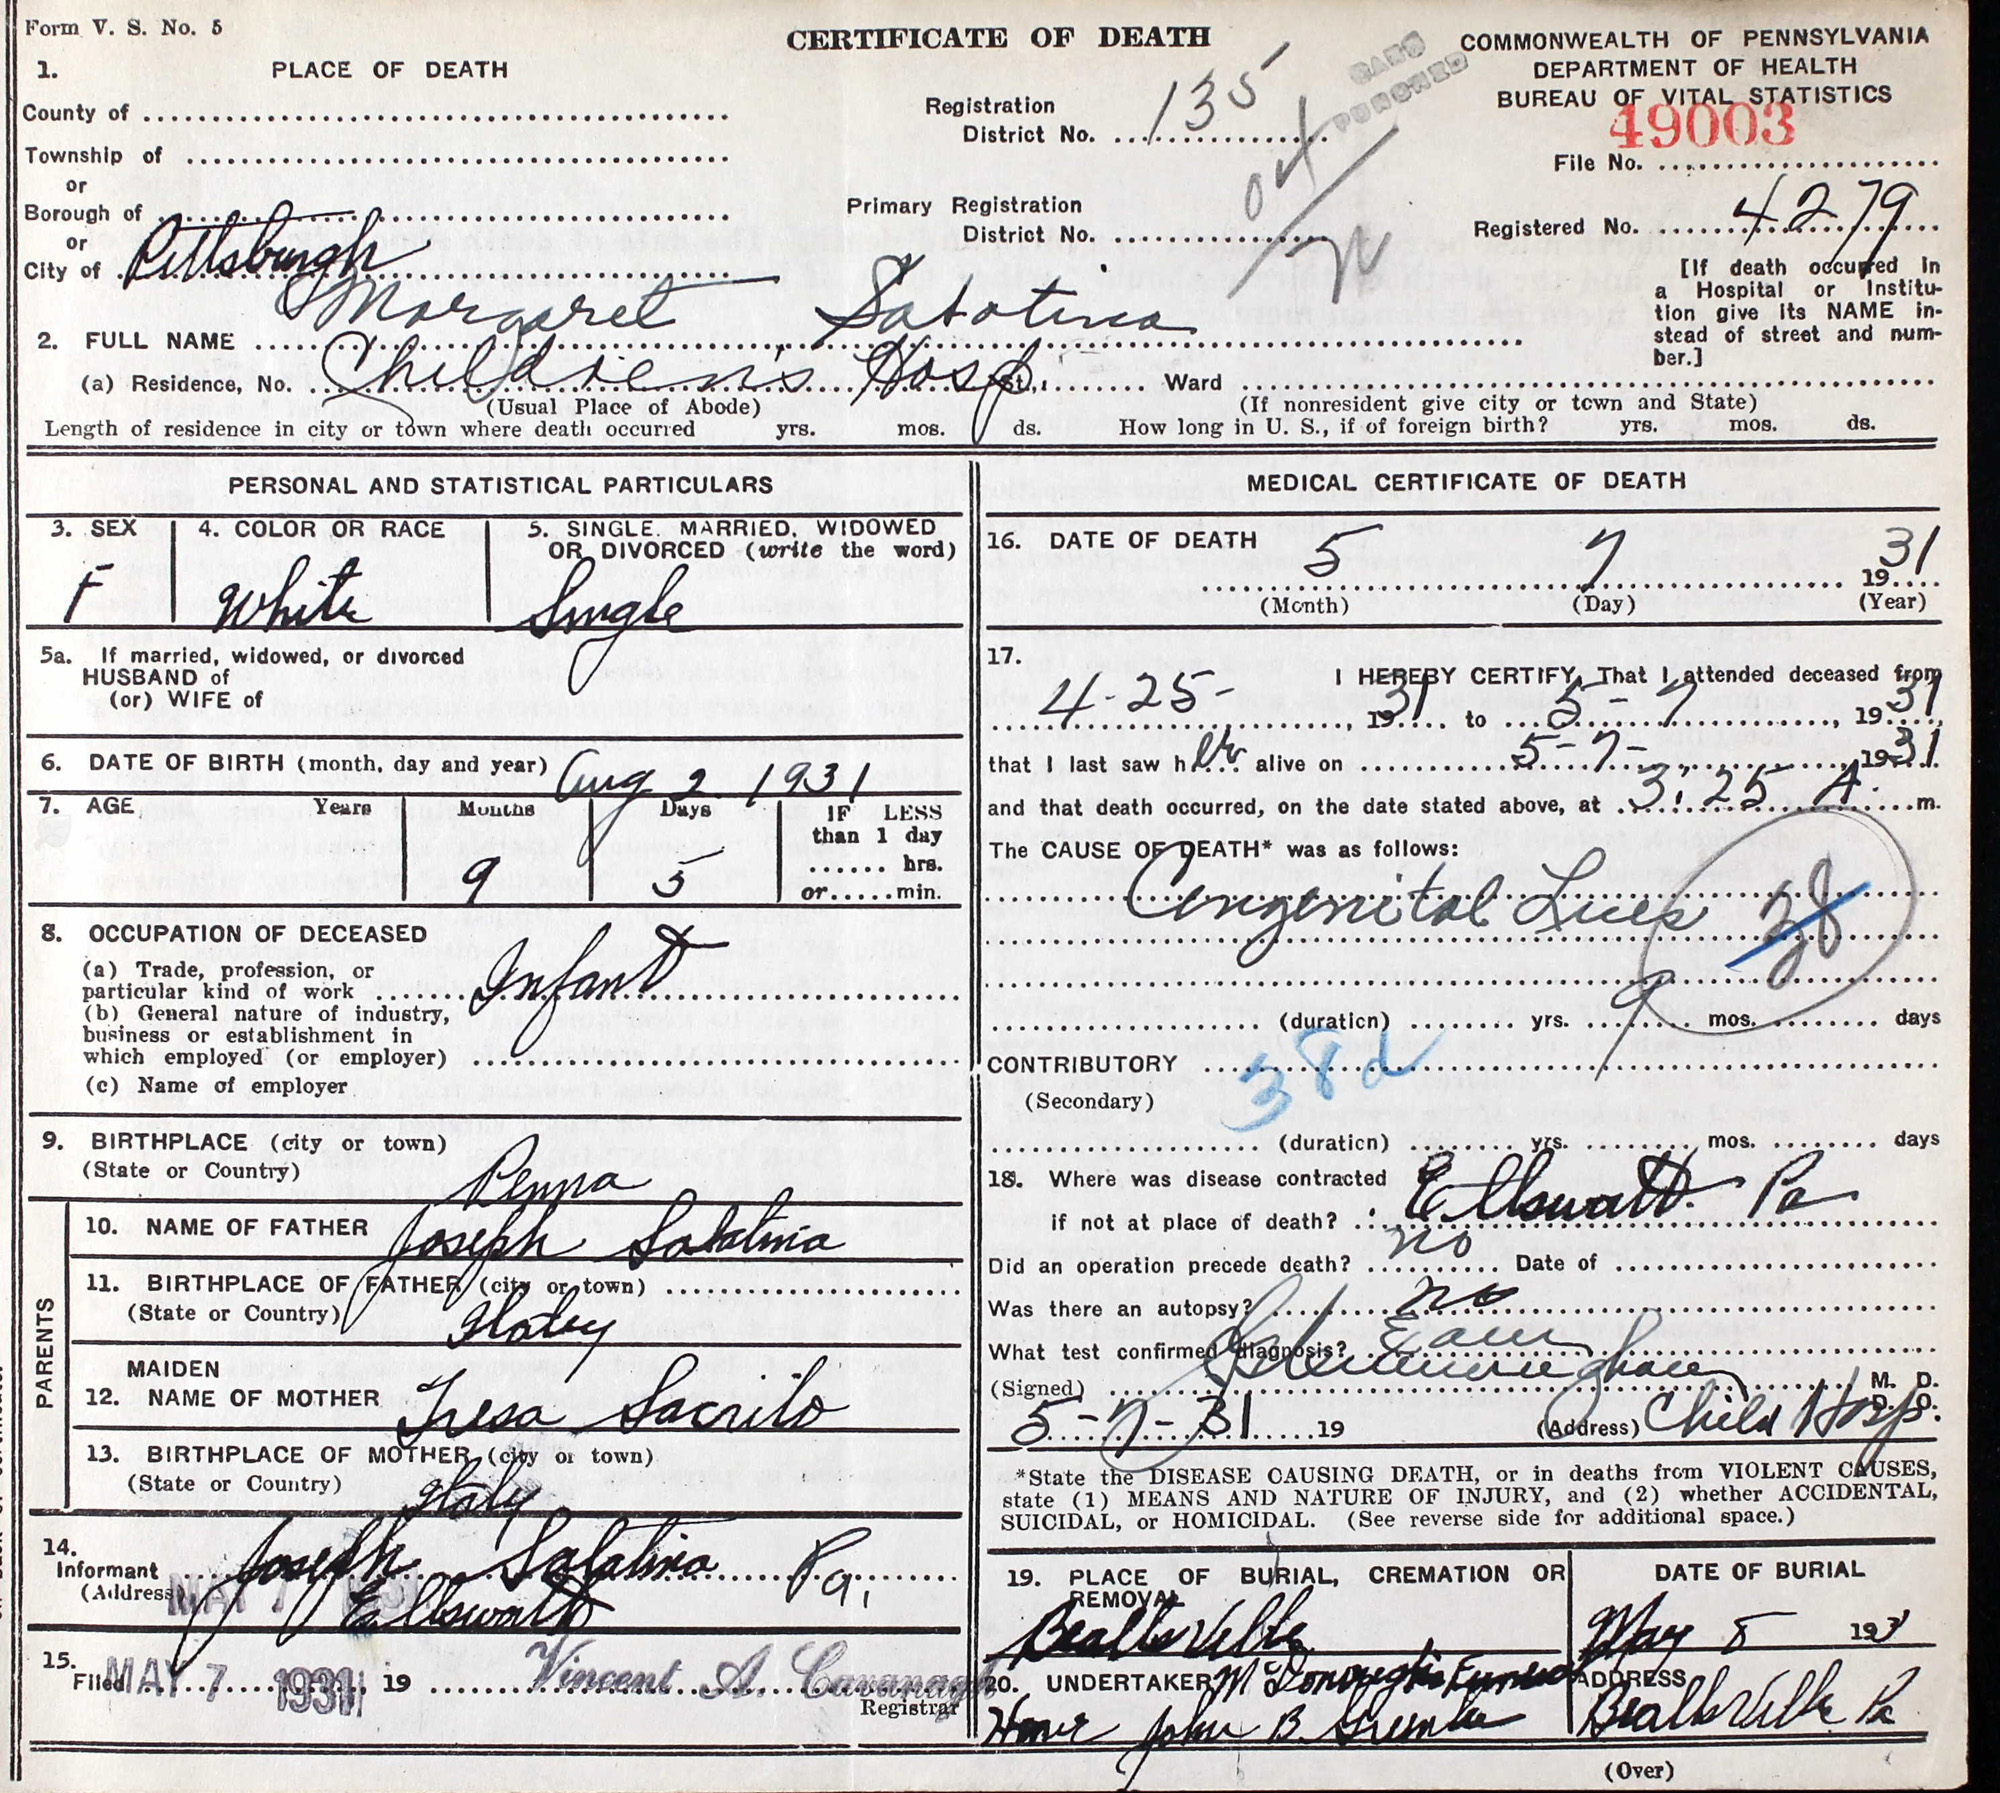 Form V. S. No. 5
CERTIFICATE OF DEATH
COMMONWEALTH OF PENNSYLVANIA
DEPARTMENT OF HEALTH
BUREAU OF VITAL STATISTICS
1. PLACE OF DEATH
County of
Township of
or
Borough of
or
City of Pittsburgh
Registration
District No. 135
Primary Registration
District No.
04
CARD
PUNCHED
49003
File No.
Registered No. 4279
[If death occurred in
a Hospital or Institu-
tion give its NAME in-
stead of street and num-
ber.]
2. FULL NAME Margaret Sabatina
(a) Residence, No. Children's Hosp St., Ward
(Usual Place of Abode) (If nonresident give city or town and State)
Length of residence in city or town where death occurred yrs. mos. ds. How long in U. S., if of foreign birth? yrs. mos. ds.
PERSONAL AND STATISTICAL PARTICULARS
3. SEX 4. COLOR OR RACE 5. SINGLE, MARRIED, WIDOWED
OR DIVORCED (write the word)
F White Single
5a. If married, widowed, or divorced
HUSBAND of
(or) WIFE of
6. DATE OF BIRTH (month, day and year) Aug 2 1931
7. AGE Years Months Days IF LESS
than 1 day
hrs.
9 5 or min.
8. OCCUPATION OF DECEASED
(a) Trade, profession, or
particular kind of work Infant
(b) General nature of industry,
business or establishment in
which employed (or employer)
(c) Name of employer
9. BIRTHPLACE (city or town)
(State or Country) Penna
PARENTS
10. NAME OF FATHER Joseph Sabatina
11. BIRTHPLACE OF FATHER (city or town)
(State or Country) Italy
MAIDEN
12. NAME OF MOTHER Tresa Sacrilo
13. BIRTHPLACE OF MOTHER (city or town)
(State or Country) Italy
14.
Informant Joseph Sabatina
(Address) Ellsworth Pa,
MAY 7 1931
15.
Filed MAY 7 1931 19 Vincent A. Cavanagh
Registrar
MEDICAL CERTIFICATE OF DEATH
16. DATE OF DEATH 5 7 1931
(Month) (Day) (Year)
17. I HEREBY CERTIFY, That I attended deceased from
4-25- 1931 to 5 7, 1931
that I last saw her alive on 5-7- 1931
and that death occurred, on the date stated above, at 3:25 A. m.
The CAUSE OF DEATH* was as follows:
Congenital Lues 38
(duration) yrs. 9 mos. days
CONTRIBUTORY 38d
(Secondary)
(duration) yrs. mos. days
18. Where was disease contracted
if not at place of death? Ellsworth Pa
Did an operation precede death? no Date of
Was there an autopsy? no
What test confirmed diagnosis? Exam
(Signed) M. D.
D. O.
5-7-31 19 (Address) Child Hosp.
*State the DISEASE CAUSING DEATH, or in deaths from VIOLENT CAUSES,
state (1) MEANS AND NATURE OF INJURY, and (2) whether ACCIDENTAL,
SUICIDAL, or HOMICIDAL. (See reverse side for additional space.)
19. PLACE OF BURIAL, CREMATION OR
REMOVAL
Beallsville
DATE OF BURIAL
May 8 1931
20. UNDERTAKER McDonough's Funeral
Home John B.
ADDRESS
Beallsville Pa
(Over)